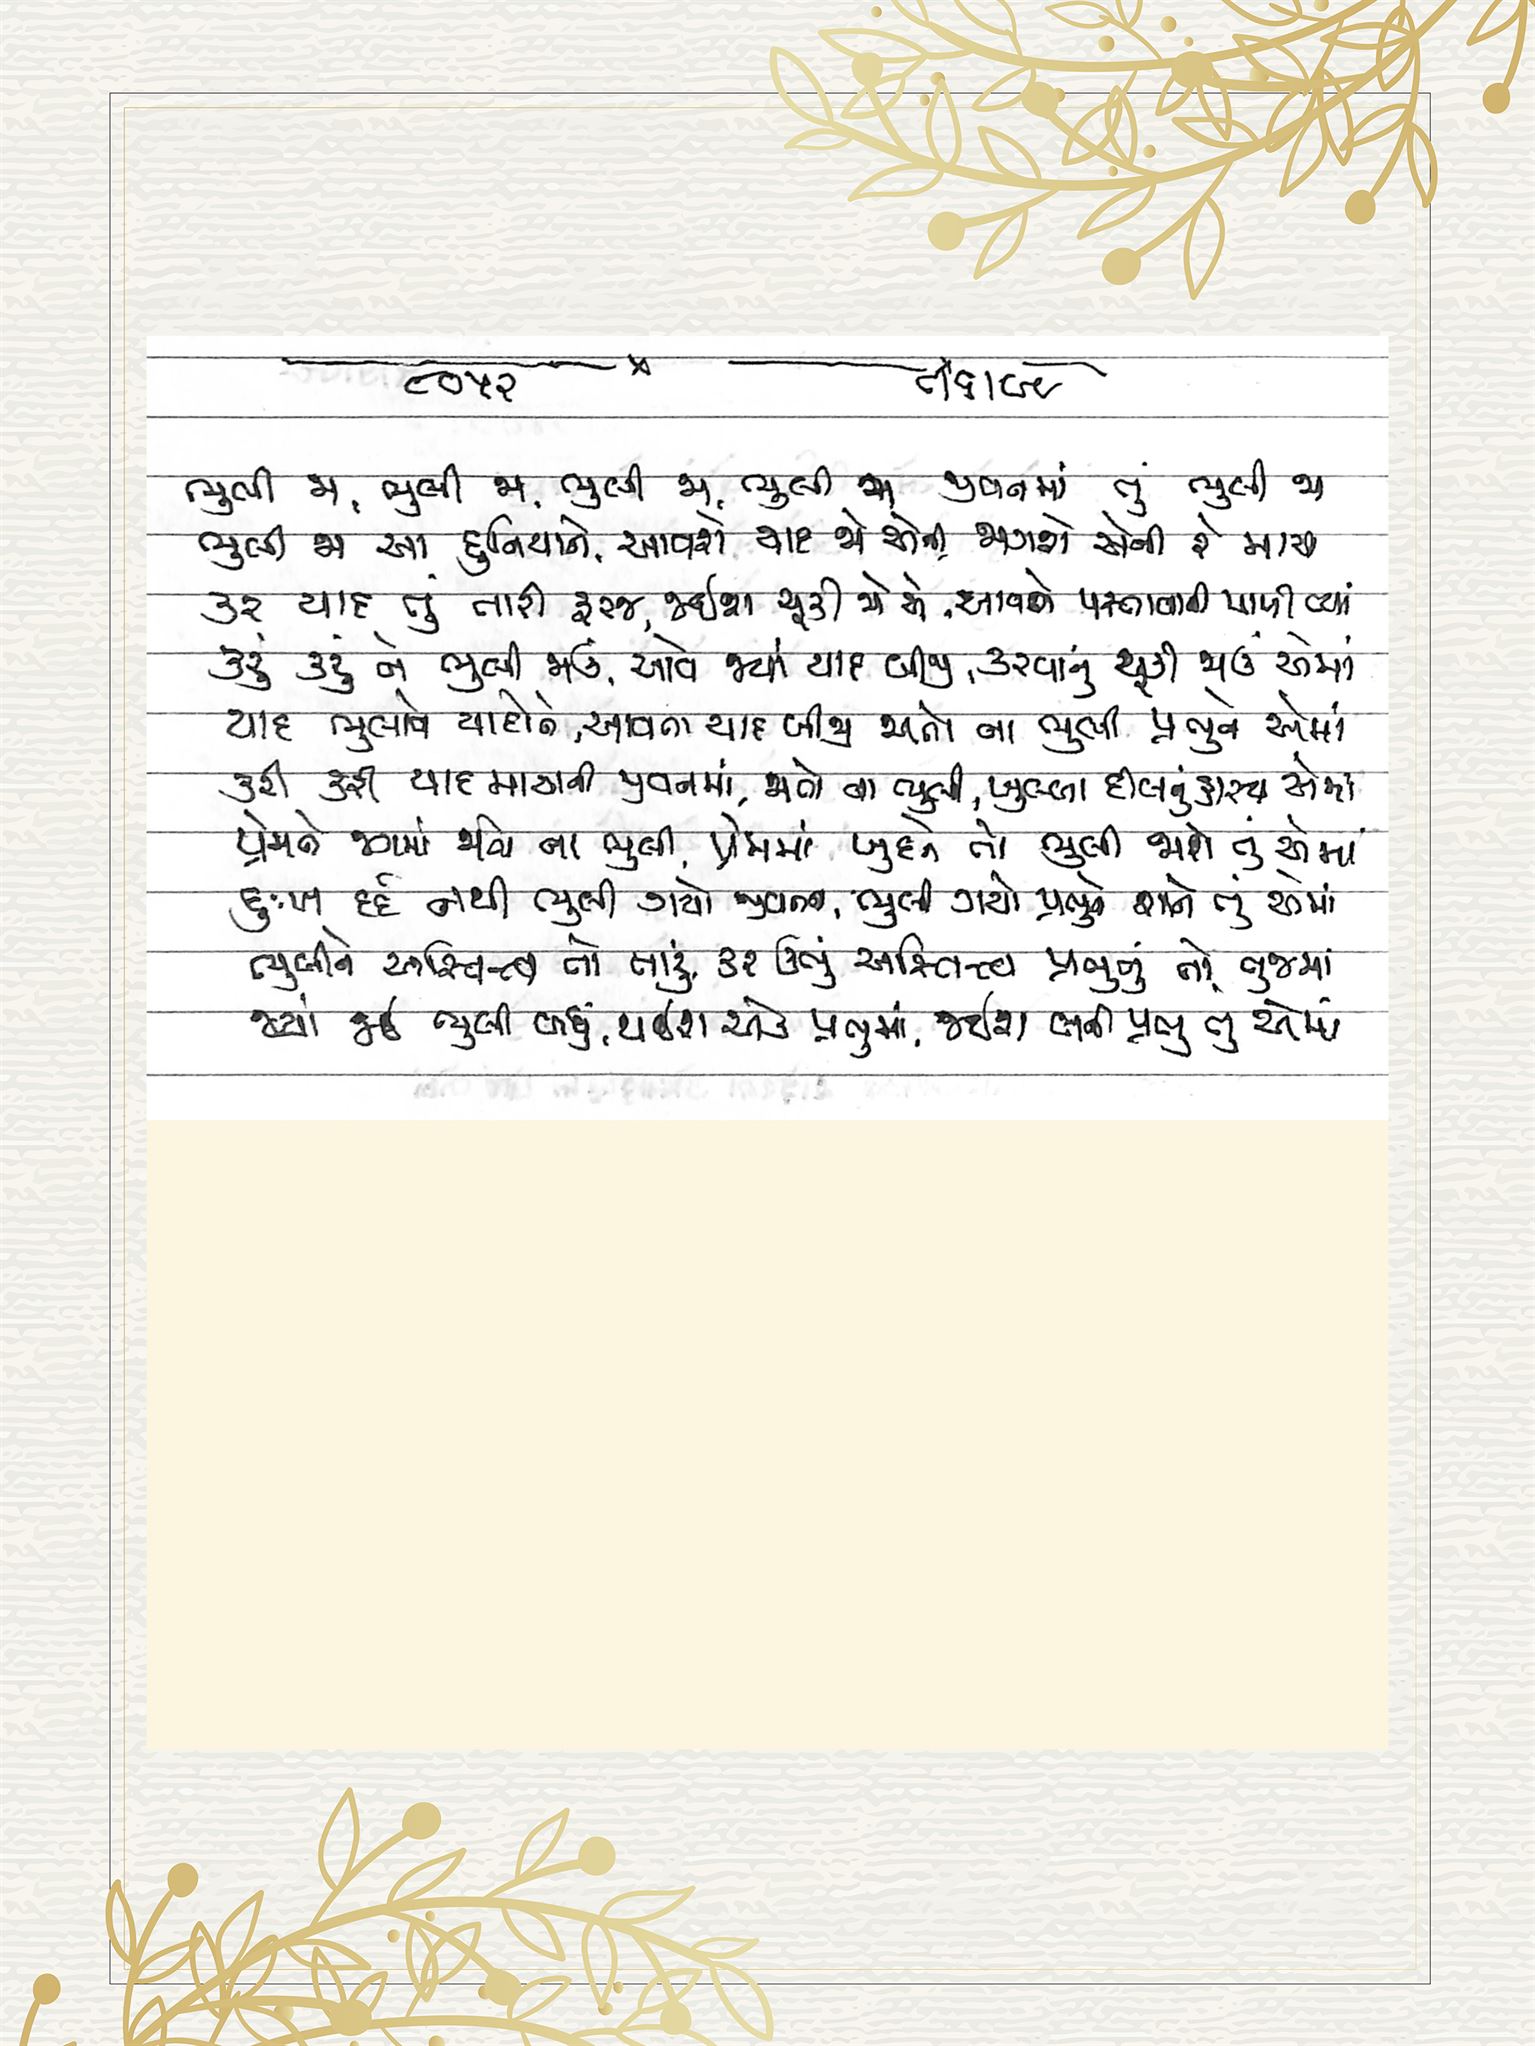 ૮૦૫૨
ભુલી જા, ભુલી જા, ભુલી જા, ભુલી જા, જીવનમાં તું ભુલી જા
ભુલી જા આ દુનિયાને, આવશે યાદ જો એની, જાગશે એની રે માયા
કર યાદ તું તારી ફરજ, જઈશ ચૂકી જો એ, આવશે પસ્તાવાની પાળી ત્યાં
કરું કરું ને ભુલી જાઉં, આવે જ્યાં યાદ બીજી, કરવાનું ચૂકી જાઉં એમાં
યાદ ભુલાવે યાદોને, આવતા યાદ બીજી જાતો ના ભુલી પ્રભુને એમાં
કરી કરી યાદ માયાની જીવનમાં, જાતો ના ભુલી, ખુલ્લા દીલનું હાસ્ય એમાં
પ્રેમને જગમાં જાતો ના ભુલી, પ્રેમમાં ખુદને તો ભુલી જાશે તું એમાં
દુઃખ દર્દ નથી ભુલી ગયો જીવનમાં, ભુલી ગયો પ્રભુને શાને તું એમાં
ભુલીને અસ્તિત્ત્વ તો તારું, કર ઊભું અસ્તિત્ત્વ પ્રભુનું તો તુજમાં
જ્યાં જઈ ભુલી બધું, થઈશ એક પ્રભુમાં, જઈશ બની પ્રભુ તું એમાં